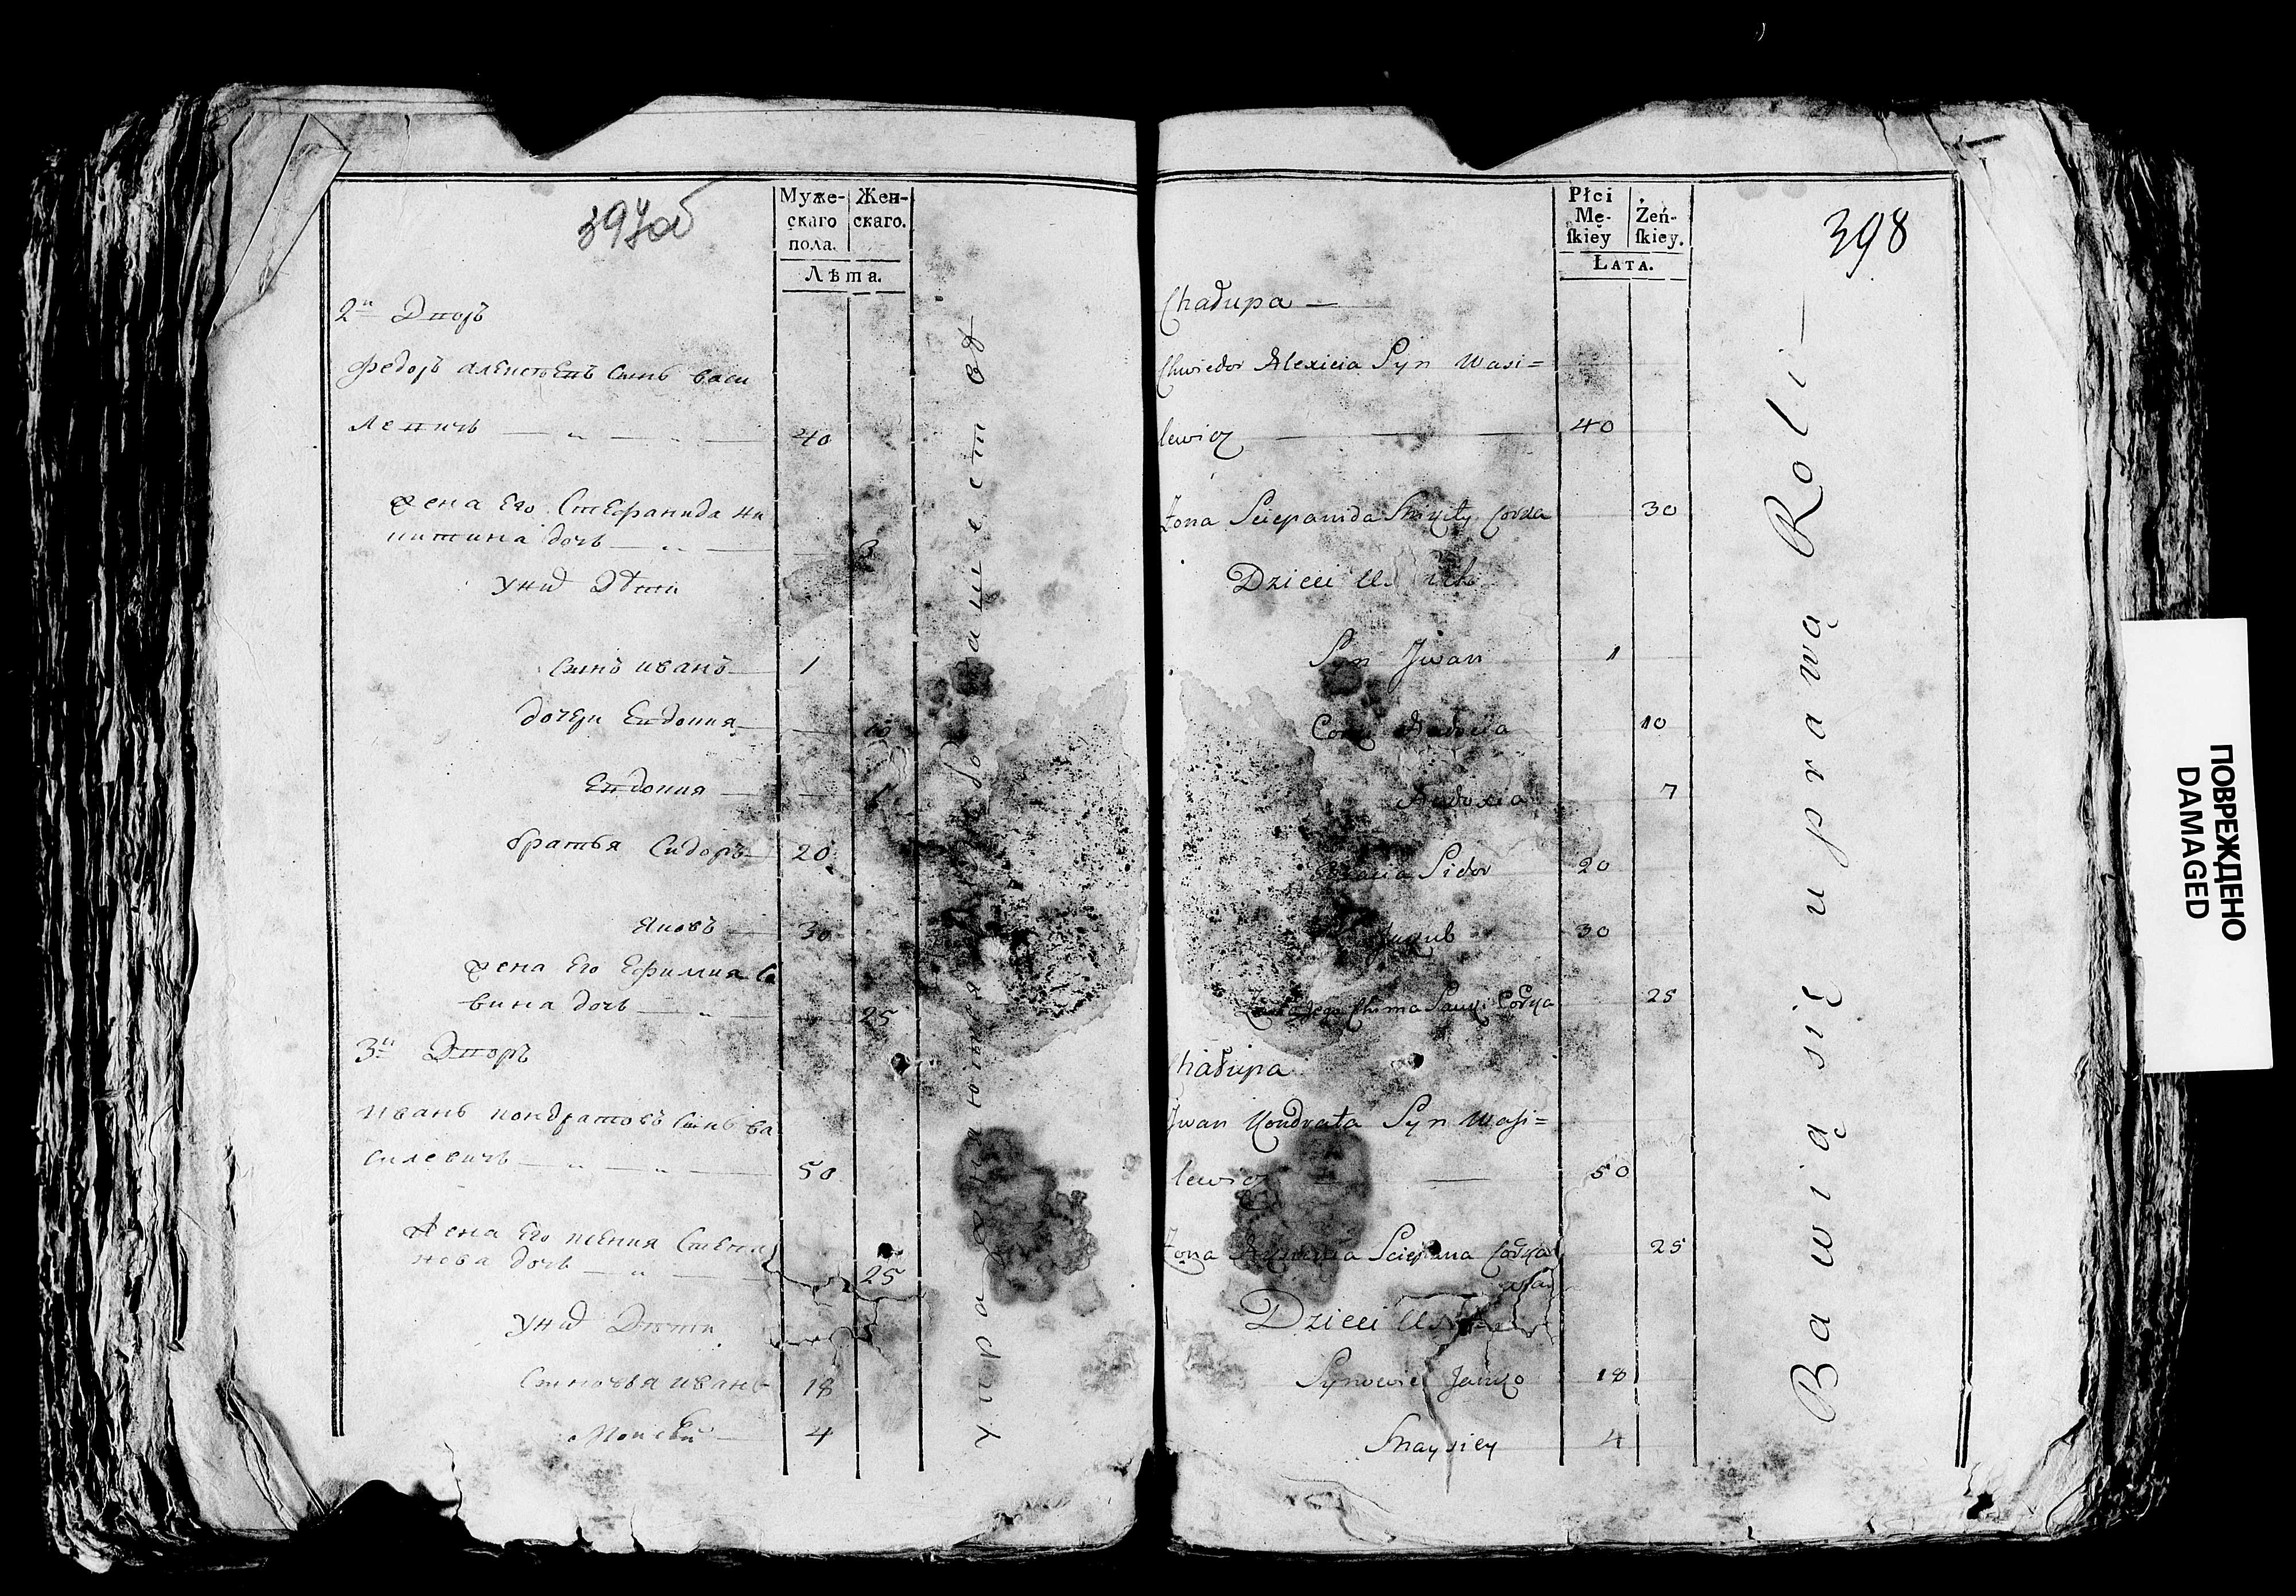 397об
Муже-
скаго
пола.
Жен-
скаго.
Лѣта.
2й Дворъ
Федоръ алексѣевъ сынъ васи
левичь 40
жена Его Стефанида ни
китина дочь 3
у них Дѣти
Сынъ иванъ 1
дочери Евдокия
Евдокия
братья Сидоръ 20
Яковъ 30
жена Его Ефимия Са
вина дочь 25
3й Дворъ
иванъ кондратовъ сынъ ва
силевичь 50
жена Его ксения Степа
нова дочь 25
у них Дѣти
Сыновья иванъ 18
Моисей 4
398
Płci
Mę-
ſkiey
Żeń-
ſkiey.
LATA.
Chałupa
Chwiedor Alexieia Syn Wasi=
lewicz 40
Żona Sciepanida Mikity Corka 30
Dzieci U nich
Syn Jwan 1
Corki Audocia 10
Audocia 7
Bracia Sidor 20
Jakub 30
Żonka Jego Chima Sawki Corka 25
Chałupa
Jwan Kondrata Syn Wasi=
lewicz 50
Żona Sciepana Corka 25
Dzieci U
Synowie Janko 18
Maysiey 4
Bawią się uprawą Roli
ПОВРЕЖДЕНО
DAMAGED